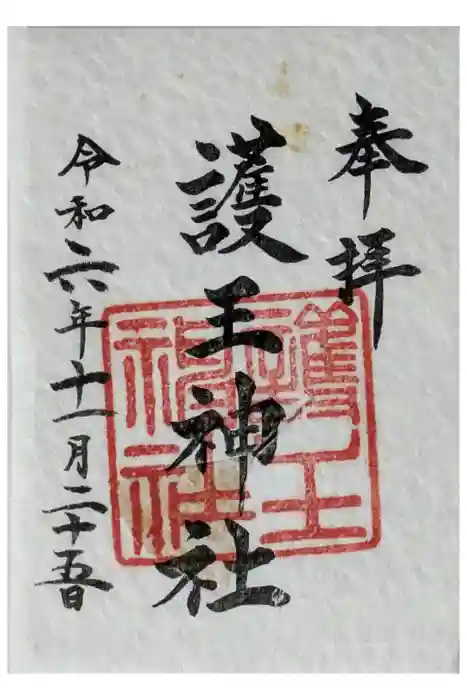 奉拝
護王神社
令和六年十一月二十五日
護王
神社